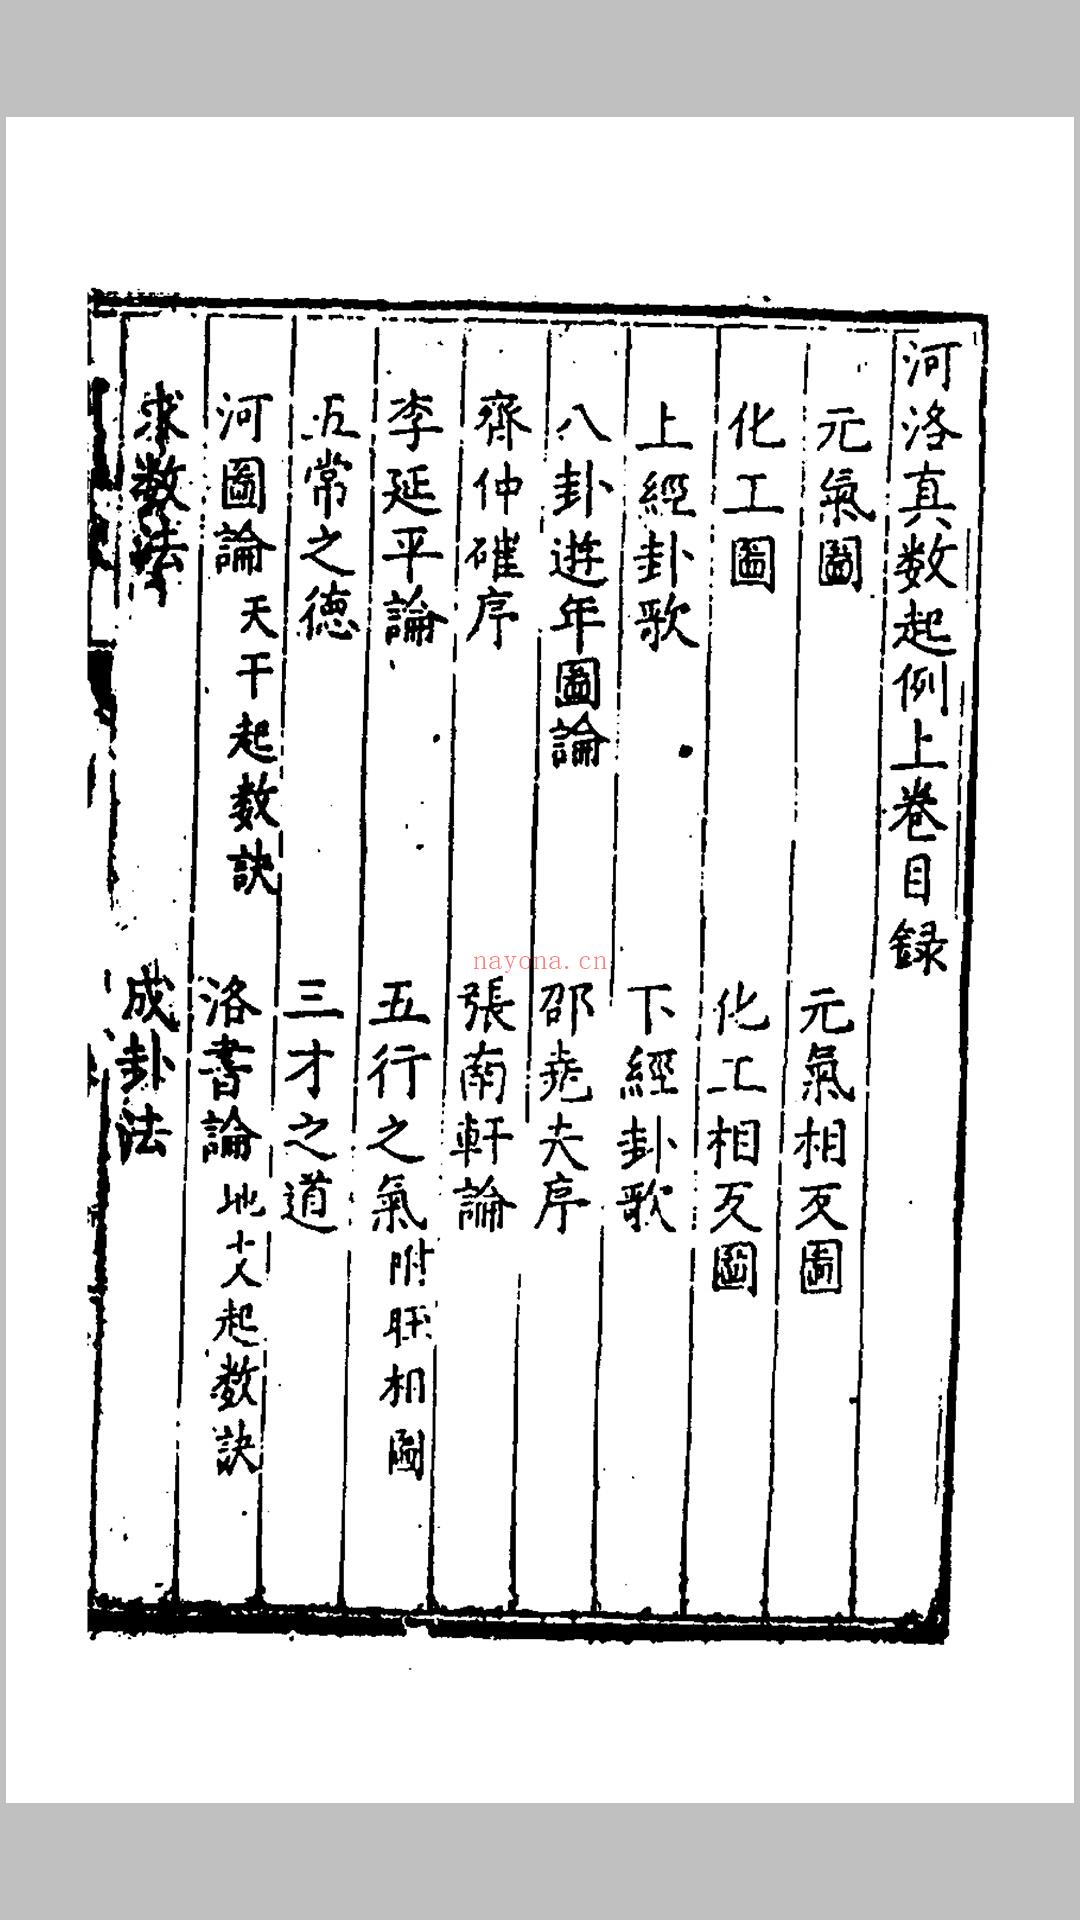 河洛真数起例上卷目録
元氣圖　元氣相反圖
化工圖　化工相反圖
上經卦歌　下經卦歌
八卦逰年圖論　邵堯夫序
齊仲確序　張南軒論
李延平論　五行之氣附旺相圖
五常之德　三才之道
河圖論天干起数訣　洛書論地支起数訣
求数法　成卦法
nayona.cn